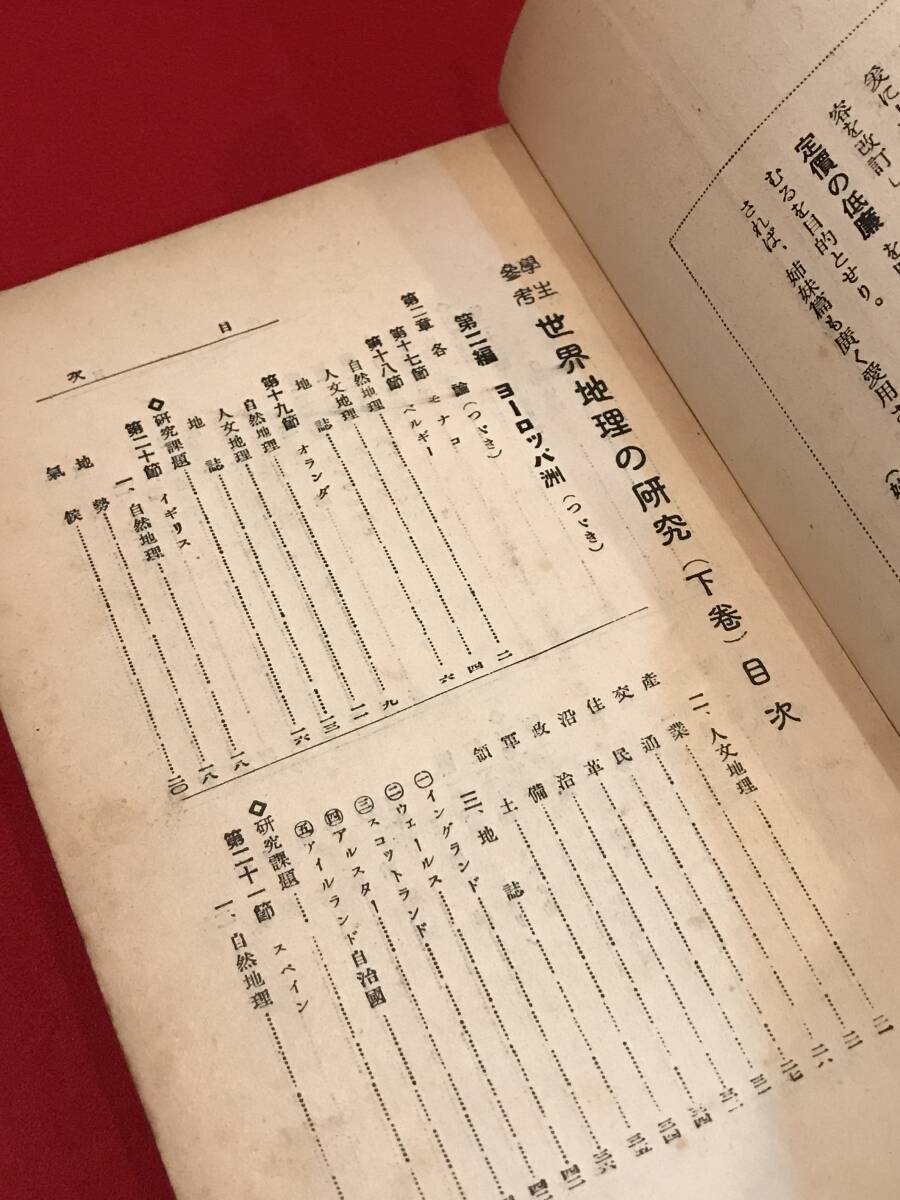 容を改訂し
定價の低廉を
むるを目的とせり。
されば、姉妹篇も廣く愛用
學生
參考
世界地理の研究（下卷）目次
第二編 ヨーロッパ洲（つゞき）
第二章 各論（つゞき）
第十七節 モナコ 二
第十八節 ベルギー 四
自然地理 六
人文地理 九
地誌 一一
第十九節 オランダ 一三
自然地理 一六
人文地理
地誌
◇研究課題 一八
第二十節 イギリス
一、自然地理 一八
地勢
氣候 二〇
目次
二、人文地理
產業
交通
住民
沿革
政治
軍備
領土
三、地誌
㊀イングランド
㊁ウェールス
㊂スコットランド
㊃アルスター
㊄アイルランド自治國
◇研究課題
第二十一節 スペイン
一、自然地理